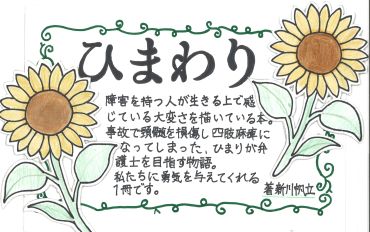 ひまわり
障害を持つ人が生きる上で感
じている大変さを描いている本。
事故で頸髄を損傷し四肢麻痺に
なってしまった、ひまりが弁
護士を目指す物語。
私たちに勇気を与えてくれる
1冊です。
著新川帆立